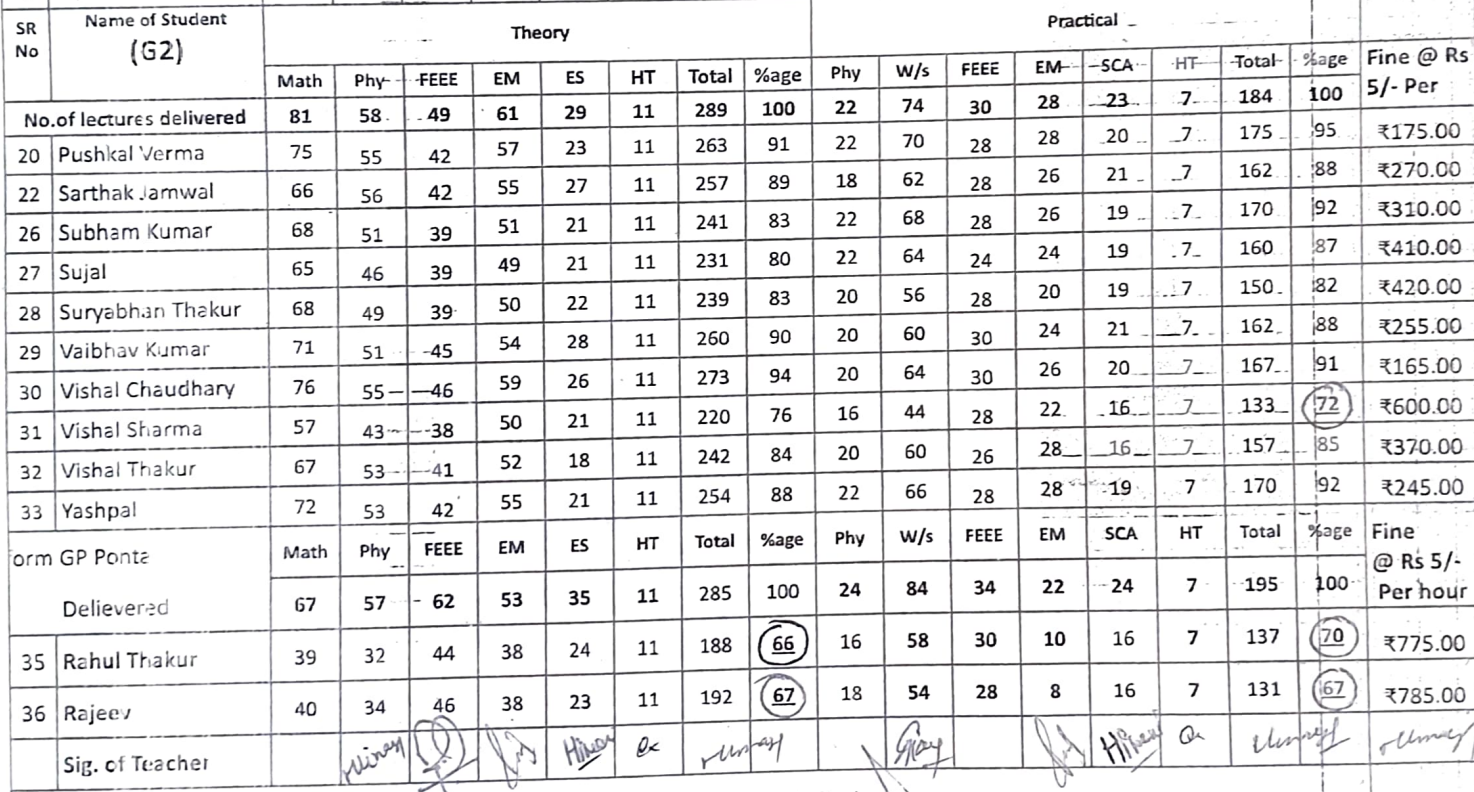 SR No Name of Student (G2) Theory Practical Fine @ Rs 5/- Per
Math Phy FEEE EM ES HT Total %age Phy W/s FEEE EM SCA HT Total %age
No.of lectures delivered 81 58 49 61 29 11 289 100 22 74 30 28 23 7 184 100
20 Pushkal Verma 75 55 42 57 23 11 263 91 22 70 28 28 20 7 175 95 ₹175.00
22 Sarthak Jamwal 66 56 42 55 27 11 257 89 18 62 28 26 21 7 162 88 ₹270.00
26 Subham Kumar 68 51 39 51 21 11 241 83 22 68 28 26 19 7 170 92 ₹310.00
27 Sujal 65 46 39 49 21 11 231 80 22 64 24 24 19 7 160 87 ₹410.00
28 Suryabhan Thakur 68 49 39 50 22 11 239 83 20 56 28 20 19 7 150 82 ₹420.00
29 Vaibhav Kumar 71 51 45 54 28 11 260 90 20 60 30 24 21 7 162 88 ₹255.00
30 Vishal Chaudhary 76 55 46 59 26 11 273 94 20 64 30 26 20 7 167 91 ₹165.00
31 Vishal Sharma 57 43 38 50 21 11 220 76 16 44 28 22 16 7 133 72 ₹600.00
32 Vishal Thakur 67 53 41 52 18 11 242 84 20 60 26 28 16 7 157 85 ₹370.00
33 Yashpal 72 53 42 55 21 11 254 88 22 66 28 28 19 7 170 92 ₹245.00
orm GP Ponta Math Phy FEEE EM ES HT Total %age Phy W/s FEEE EM SCA HT Total %age Fine @ Rs 5/- Per hour
Delievered 67 57 62 53 35 11 285 100 24 84 34 22 24 7 195 100
35 Rahul Thakur 39 32 44 38 24 11 188 66 16 58 30 10 16 7 137 70 ₹775.00
36 Rajeev 40 34 46 38 23 11 192 67 18 54 28 8 16 7 131 67 ₹785.00
Sig. of Teacher